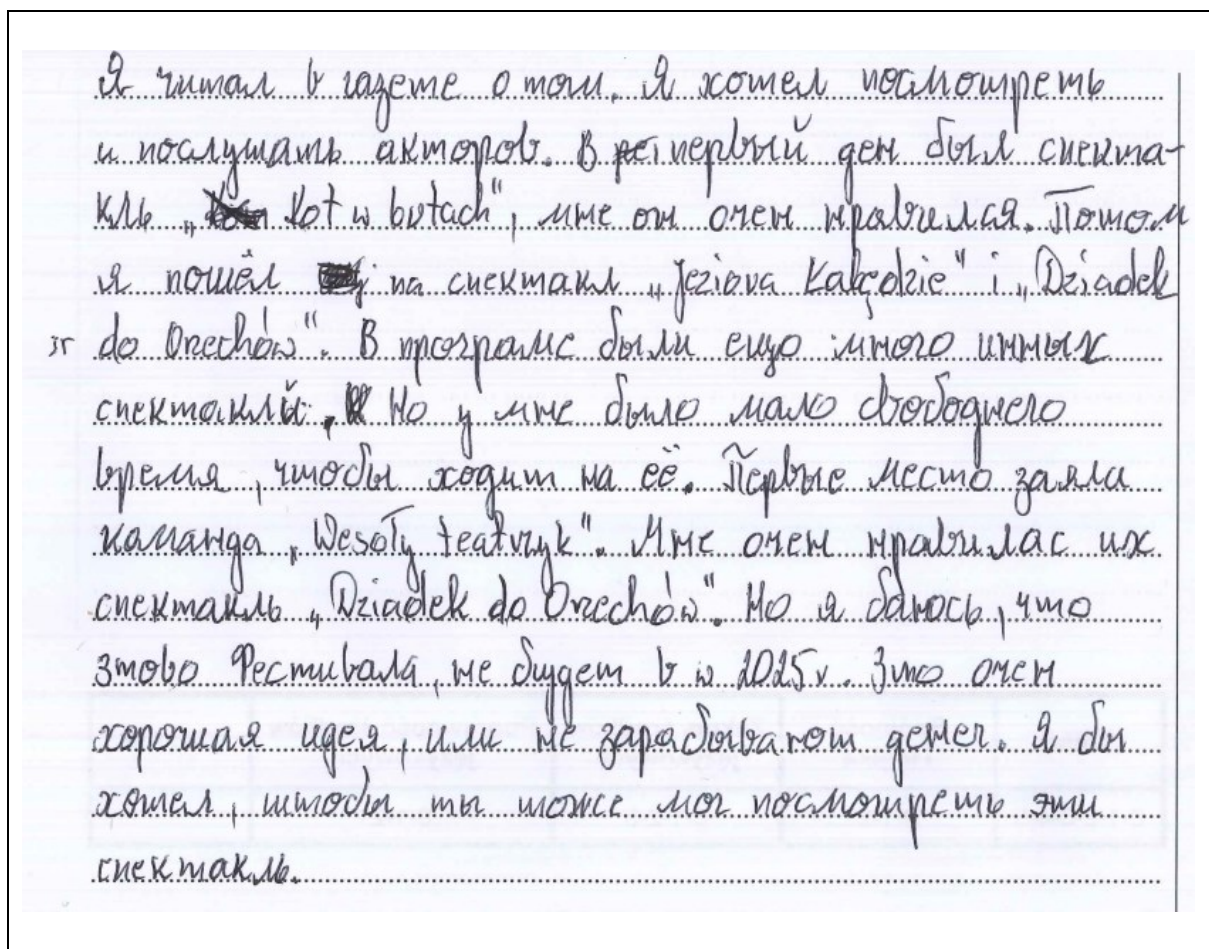 Я читал в газете о том. Я хотел посмотреть
и послушать акторов. В первый ден был спекта-
кль „Kot w butach", мне он очен нравился. Потом
я пошёл на спектакл „Jeziora Łabędzie" i „Dziadek
do Orzechów". В програме были ещо много инных
спектаклй. Но у мне было мало свободнего
время, чтобы ходит на её. Первые место заяла
каманда „Wesoły teatrzyk". Мне очен нравилас их
спектакль „Dziadek do Orzechów". Но я баюсь, что
этово Фестиваля, не будет в w 2025 r. Это очен
хорошая идея, или не зарабывают денег. Я бы
хотел, штобы ты тоже мог посмотреть эти
спектакль.